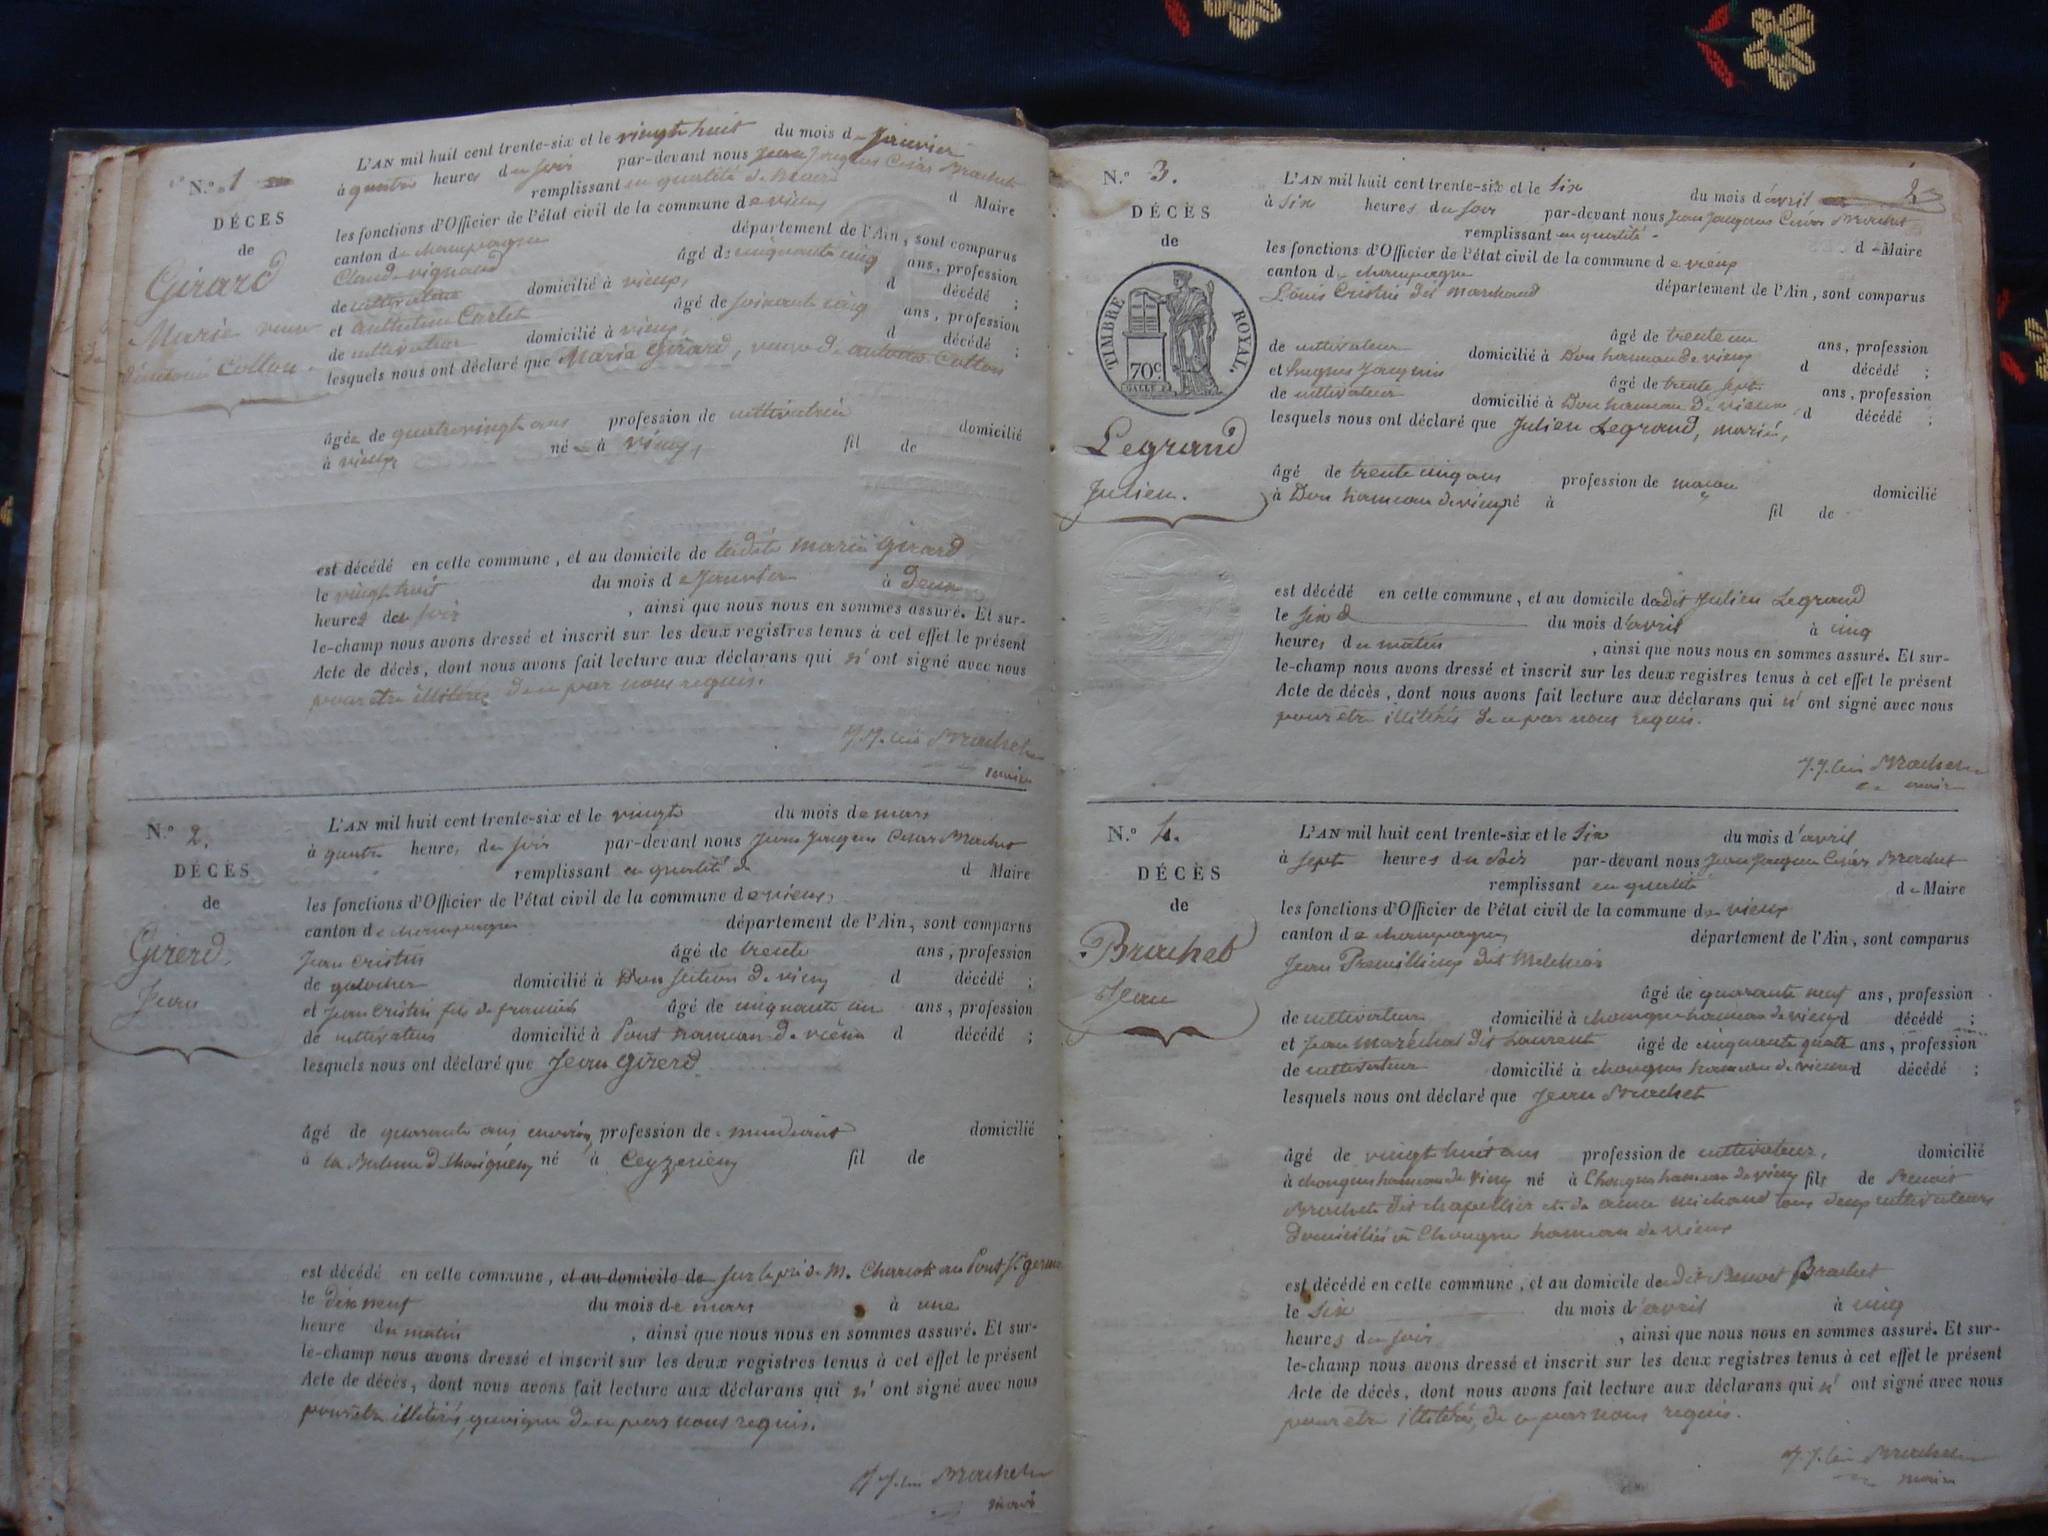 N.º 1
DÉCÈS
de
Girard
Marie veuve
d'antoine Collon.
L'AN mil huit cent trente-six et le vingt huit du mois de Janvier
à quatre heures du soir par-devant nous Jean Jacques César Brachet
remplissant en qualité de Maire d Maire
les fonctions d'Officier de l'état civil de la commune de vieux
canton de champagne département de l'Ain, sont comparus
Claude vignand âgé de cinquante cinq ans, profession
de cultivateur domicilié à vieux, d décédé ;
et Carlet âgé de soixante cinq ans, profession
de cultivateur domicilié à vieux, d décédé ;
lesquels nous ont déclaré que Marie Girard, veuve de antoine Collon
âgée de quatrevingt ans profession de cultivatrice domicilié
à vieux né à vieux, fil de
est décédé en cette commune, et au domicile de ladite Marie Girard
le vingt huit du mois de Janvier à deux
heures du soir , ainsi que nous nous en sommes assuré. Et sur-
le-champ nous avons dressé et inscrit sur les deux registres tenus à cet effet le présent
Acte de décès, dont nous avons fait lecture aux déclarans qui n'ont signé avec nous
pour être illiterés de ce par nous requis.
J. J. Cés Brachet
maire
N.º 2.
DÉCÈS
de
Girerd
Jean
L'AN mil huit cent trente-six et le vingt du mois de mars
à quatre heures du soir par-devant nous Jean Jacques César Brachet
remplissant en qualité de d Maire
les fonctions d'Officier de l'état civil de la commune de vieux,
canton de champagne département de l'Ain, sont comparus
Jean Cristin âgé de trente ans, profession
de galocher domicilié à Don section de vieux d décédé ;
et Jean Cristin fils de francois âgé de cinquante un ans, profession
de cultivateur domicilié à Pont hameau de vieux d décédé ;
lesquels nous ont déclaré que Jean Girerd
âgé de quarante ans environ, profession de mendiant domicilié
à la né à Ceyzerieux fil de
est décédé en cette commune, et au domicile de sur le pré de M. Charcot au Pont St germain
le dix neuf du mois de mars à une
heure du matin , ainsi que nous nous en sommes assuré. Et sur-
le-champ nous avons dressé et inscrit sur les deux registres tenus à cet effet le présent
Acte de décès, dont nous avons fait lecture aux déclarans qui n'ont signé avec nous
pour être illiterés, quoique de ce par nous requis.
J. J. Cés Brachet
maire
N.º 3.
DÉCÈS
de
TIMBRE ROYAL.
70c
Legrand
Julien.
L'AN mil huit cent trente-six et le six du mois d'avril
à six heures du soir par-devant nous Jean Jacques César Brachet
remplissant en qualité de Maire
les fonctions d'Officier de l'état civil de la commune de vieux
canton de champagne département de l'Ain, sont comparus
Louis Cristin dit Marchand
âgé de trente un ans, profession
de cultivateur domicilié à Don hameau de vieux d décédé ;
et hugues Jacquin âgé de trente sept ans, profession
de cultivateur domicilié à Don hameau de vieux, d décédé ;
lesquels nous ont déclaré que Julien Legrand, marié,
âgé de trente cinq ans profession de macon domicilié
à Don hameau de vieux né à fil de
est décédé en cette commune, et au domicile dudit Julien Legrand
le six du mois d'avril à cinq
heures du matin , ainsi que nous nous en sommes assuré. Et sur-
le-champ nous avons dressé et inscrit sur les deux registres tenus à cet effet le présent
Acte de décès, dont nous avons fait lecture aux déclarans qui n'ont signé avec nous
pour être illitérés de ce par nous requis.
J. J. Cés Brachet
maire
N.º 4.
DÉCÈS
de
Brachet
Jean
L'AN mil huit cent trente-six et le six du mois d'avril
à sept heures du soir par-devant nous Jean Jacques César Brachet
remplissant en qualité de Maire
les fonctions d'Officier de l'état civil de la commune de vieux
canton de champagne département de l'Ain, sont comparus
Jean Premillieux dit Melchior
âgé de quarante neuf ans, profession
de cultivateur domicilié à chongne hameau de vieux d décédé ;
et Jean Maréchal dit Laurent âgé de cinquante quatre ans, profession
de cultivateur domicilié à chongne hameau de vieux d décédé ;
lesquels nous ont déclaré que Jean Brachet
âgé de vingt huit ans profession de cultivateur, domicilié
à chongne hameau de vieux né à Chongne hameau de vieux fils de Benoit
Brachet dit chapellier et de anne michaud tous deux cultivateurs
domiciliés à Chongne hameau de vieux
est décédé en cette commune, et au domicile dudit Benoit Brachet
le six du mois d'avril à cinq
heures du soir , ainsi que nous nous en sommes assuré. Et sur-
le-champ nous avons dressé et inscrit sur les deux registres tenus à cet effet le présent
Acte de décès, dont nous avons fait lecture aux déclarans qui n'ont signé avec nous
pour être illitérés, de ce par nous requis.
J. J. Cés Brachet
maire